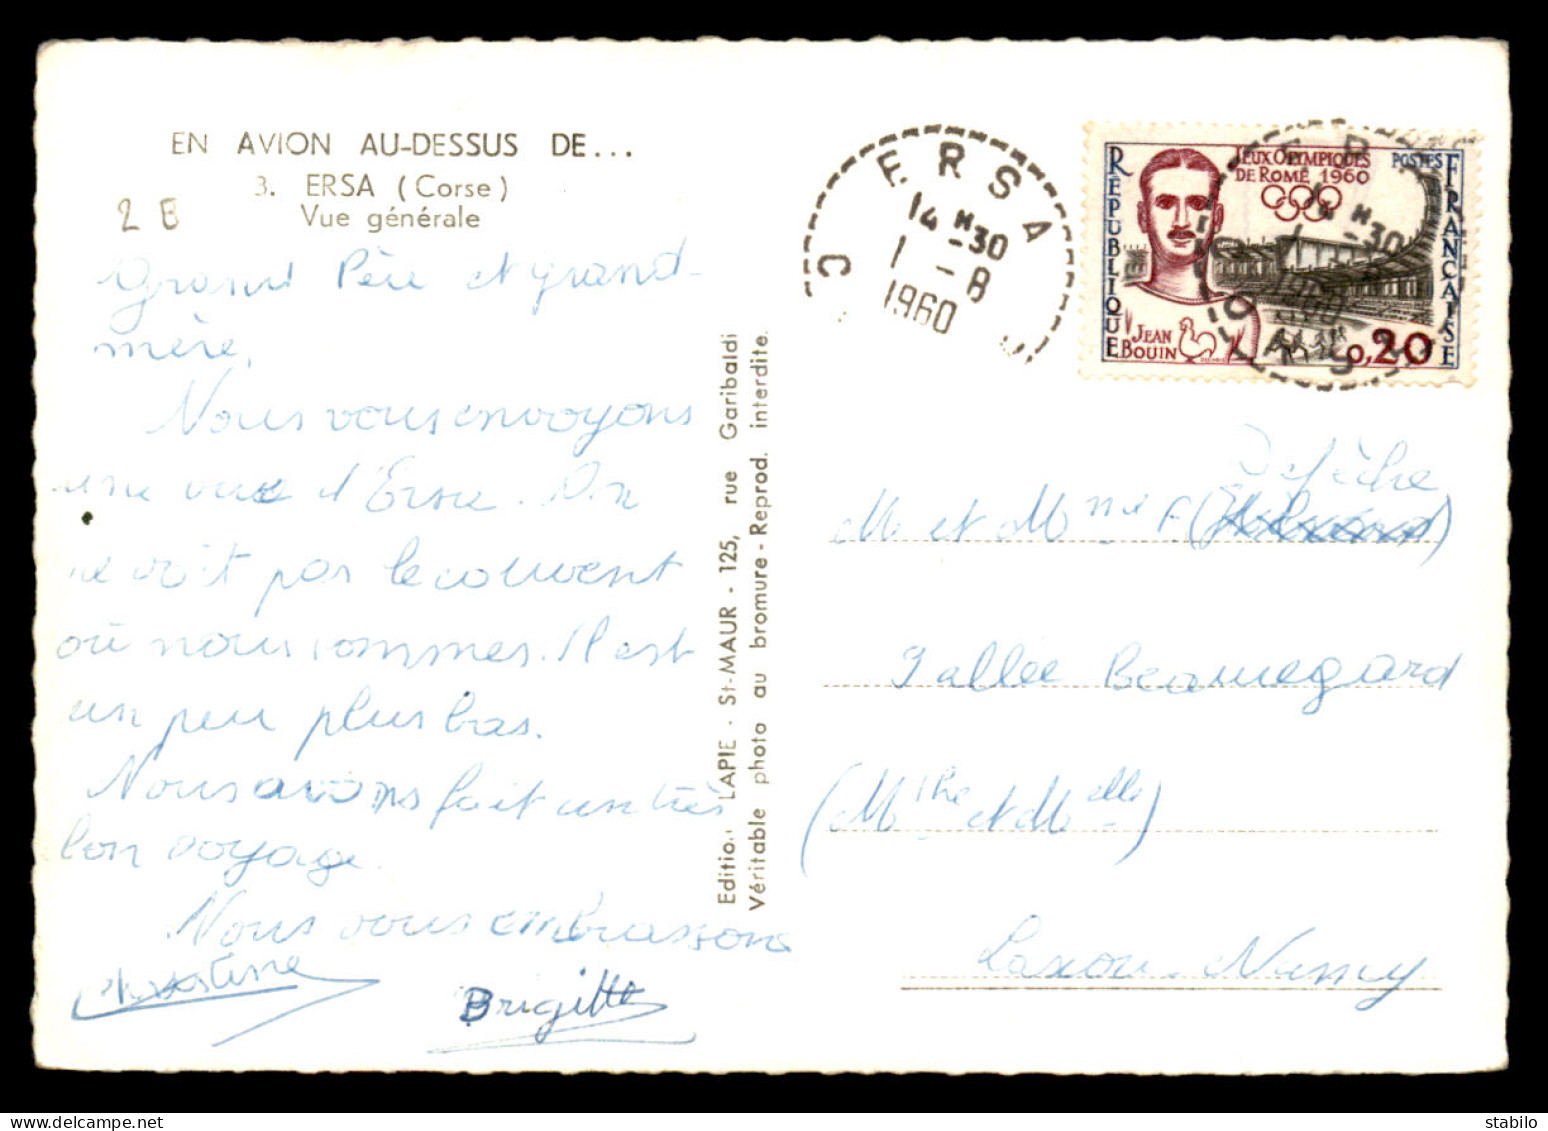 EN AVION AU-DESSUS DE...
3. ERSA (Corse)
Vue générale
2 E
Grand Père et grand-
mère,
Nous vous envoyons
une vue d'Ersa. On
ne voit pas le couvent
où nous sommes. Il est
un peu plus bas.
Nous avons fait un très
bon voyage.
Nous vous embrassons
Christine
Brigitte
Edition LAPIE - St-MAUR - 125, rue Garibaldi
Véritable photo au bromure - Reprod. interdite.
ERSA
14 H -30
1 -8
1960
C
RÉPUBLIQUE
JEUX OLYMPIQUES
DE ROME 1960
POSTES
FRANÇAISE
JEAN
BOUIN
0,20
ERSA
14 H -30
1 -8
1960
M et Mme F
9 allée Beauregard
(Mthe et Melle)
Laxou-Nancy
stabilo